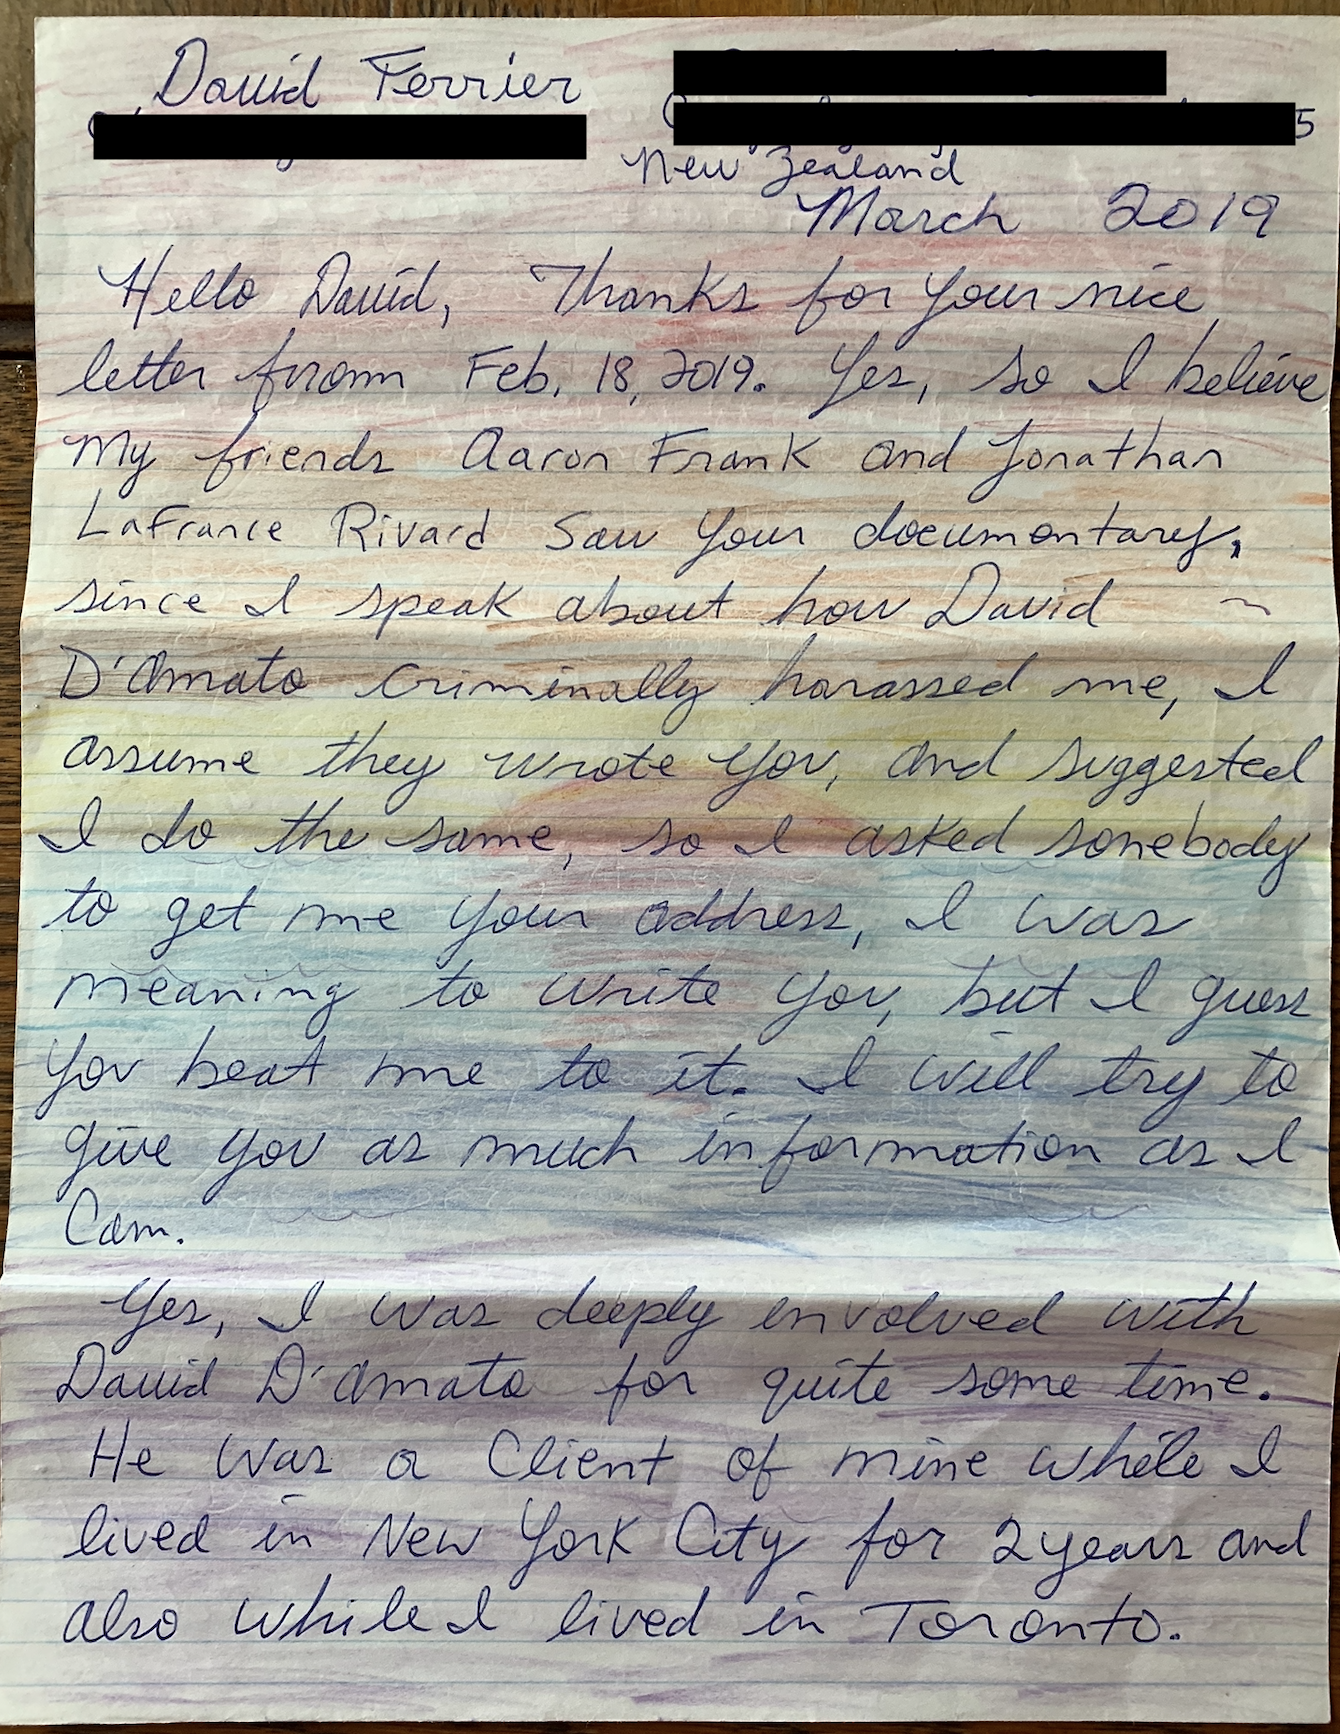 David Ferrier
5
New Zealand
March 2019
Hello David, Thanks for your nice
letter from Feb. 18, 2019. Yes, so I believe
My friends Aaron Frank and Jonathan
LaFrance Rivard saw your documentary,
since I speak about how David ~
D'Amato criminally harassed me, I
assume they wrote you, and suggested
I do the same, so I asked somebody
to get me your address, I was
meaning to write you, but I guess
you beat me to it. I will try to
give you as much information as I
can.
Yes, I was deeply involved with
David D'Amato for quite some time.
He was a Client of mine while I
lived in New York City for 2 years and
also while I lived in Toronto.